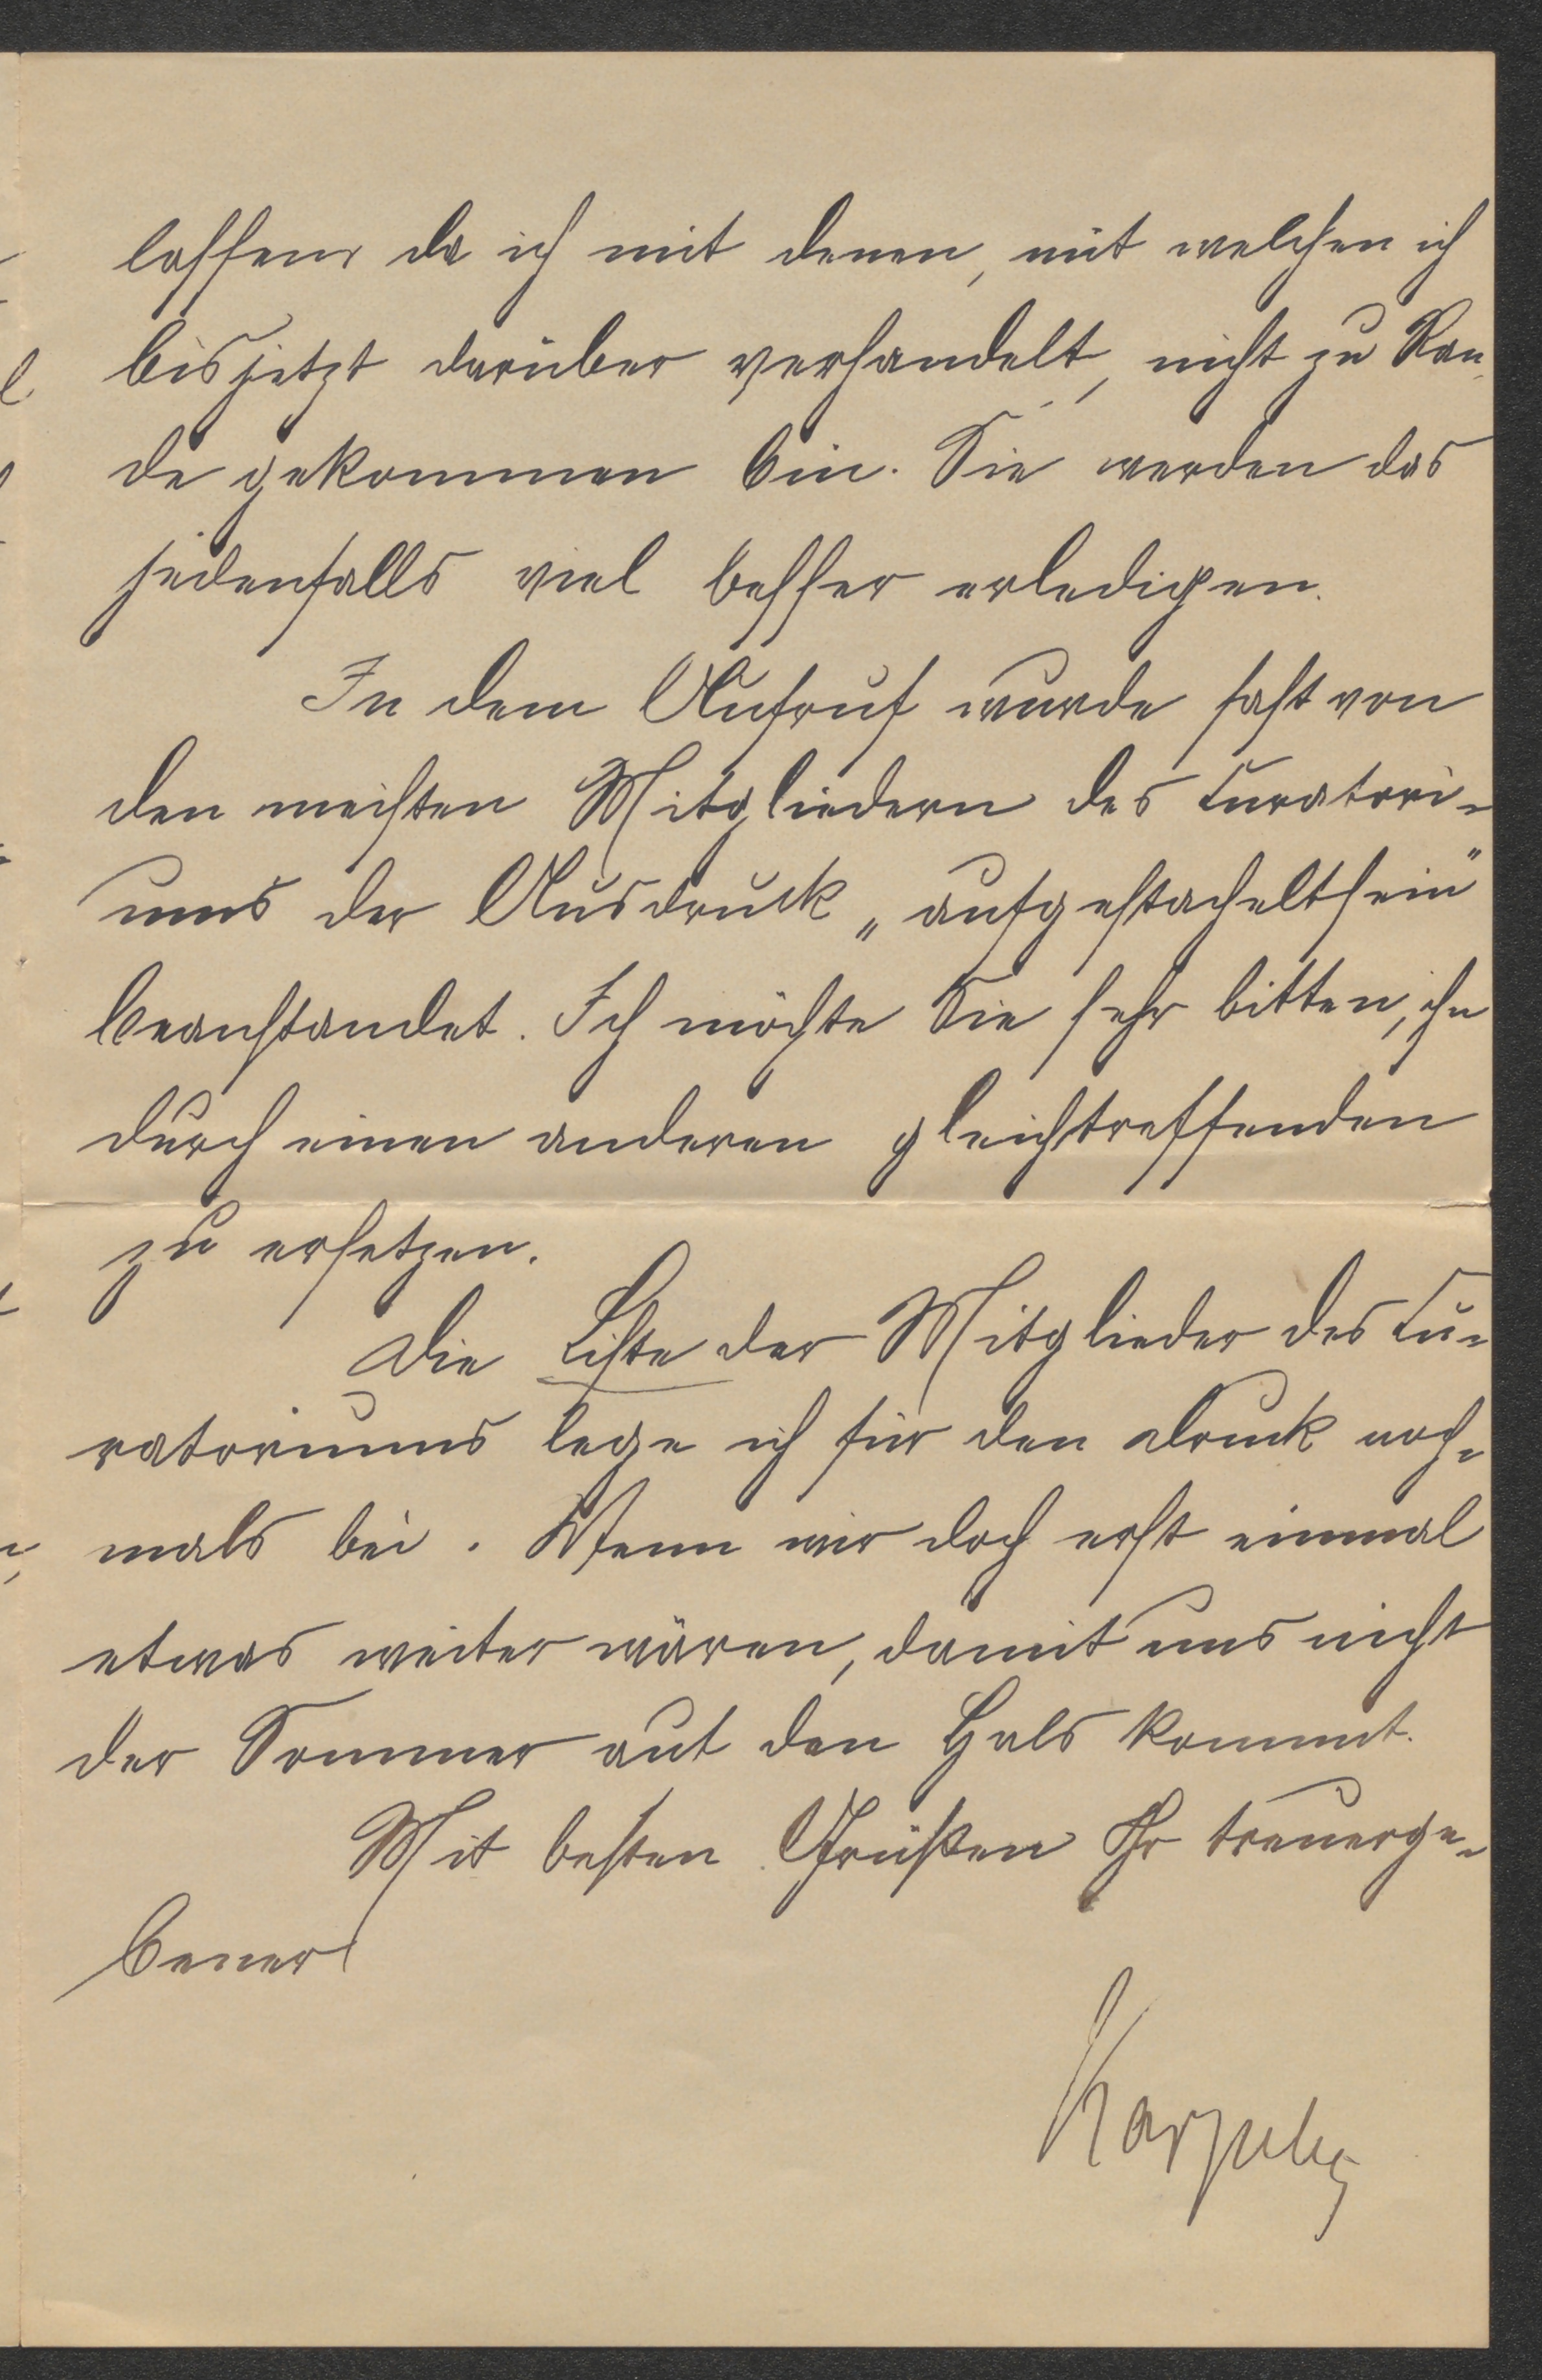 lassen, da ich mit denen, mit welchen ich
bis jetzt darüber verhandelt, nicht zu Ran-
de gekommen bin. Sie werden das
jedenfalls viel besser erledigen.
In dem Aufruf wurde fast von
den meisten Mitgliedern des Curatori-
ums der Ausdruck „aufgestacheltsein"
beanstandet. Ich möchte Sie sehr bitten, ihn
durch einen anderen gleichtreffenden
zu ersetzen.
Die Liste der Mitglieder des Cu-
ratoriums lege ich für den Druck noch-
mals bei. Wenn wir doch erst einmal
etwas weiter wären, damit uns nicht
der Sommer auf den Hals kommt.
Mit besten Grüßen Ihr treuerge-
bener